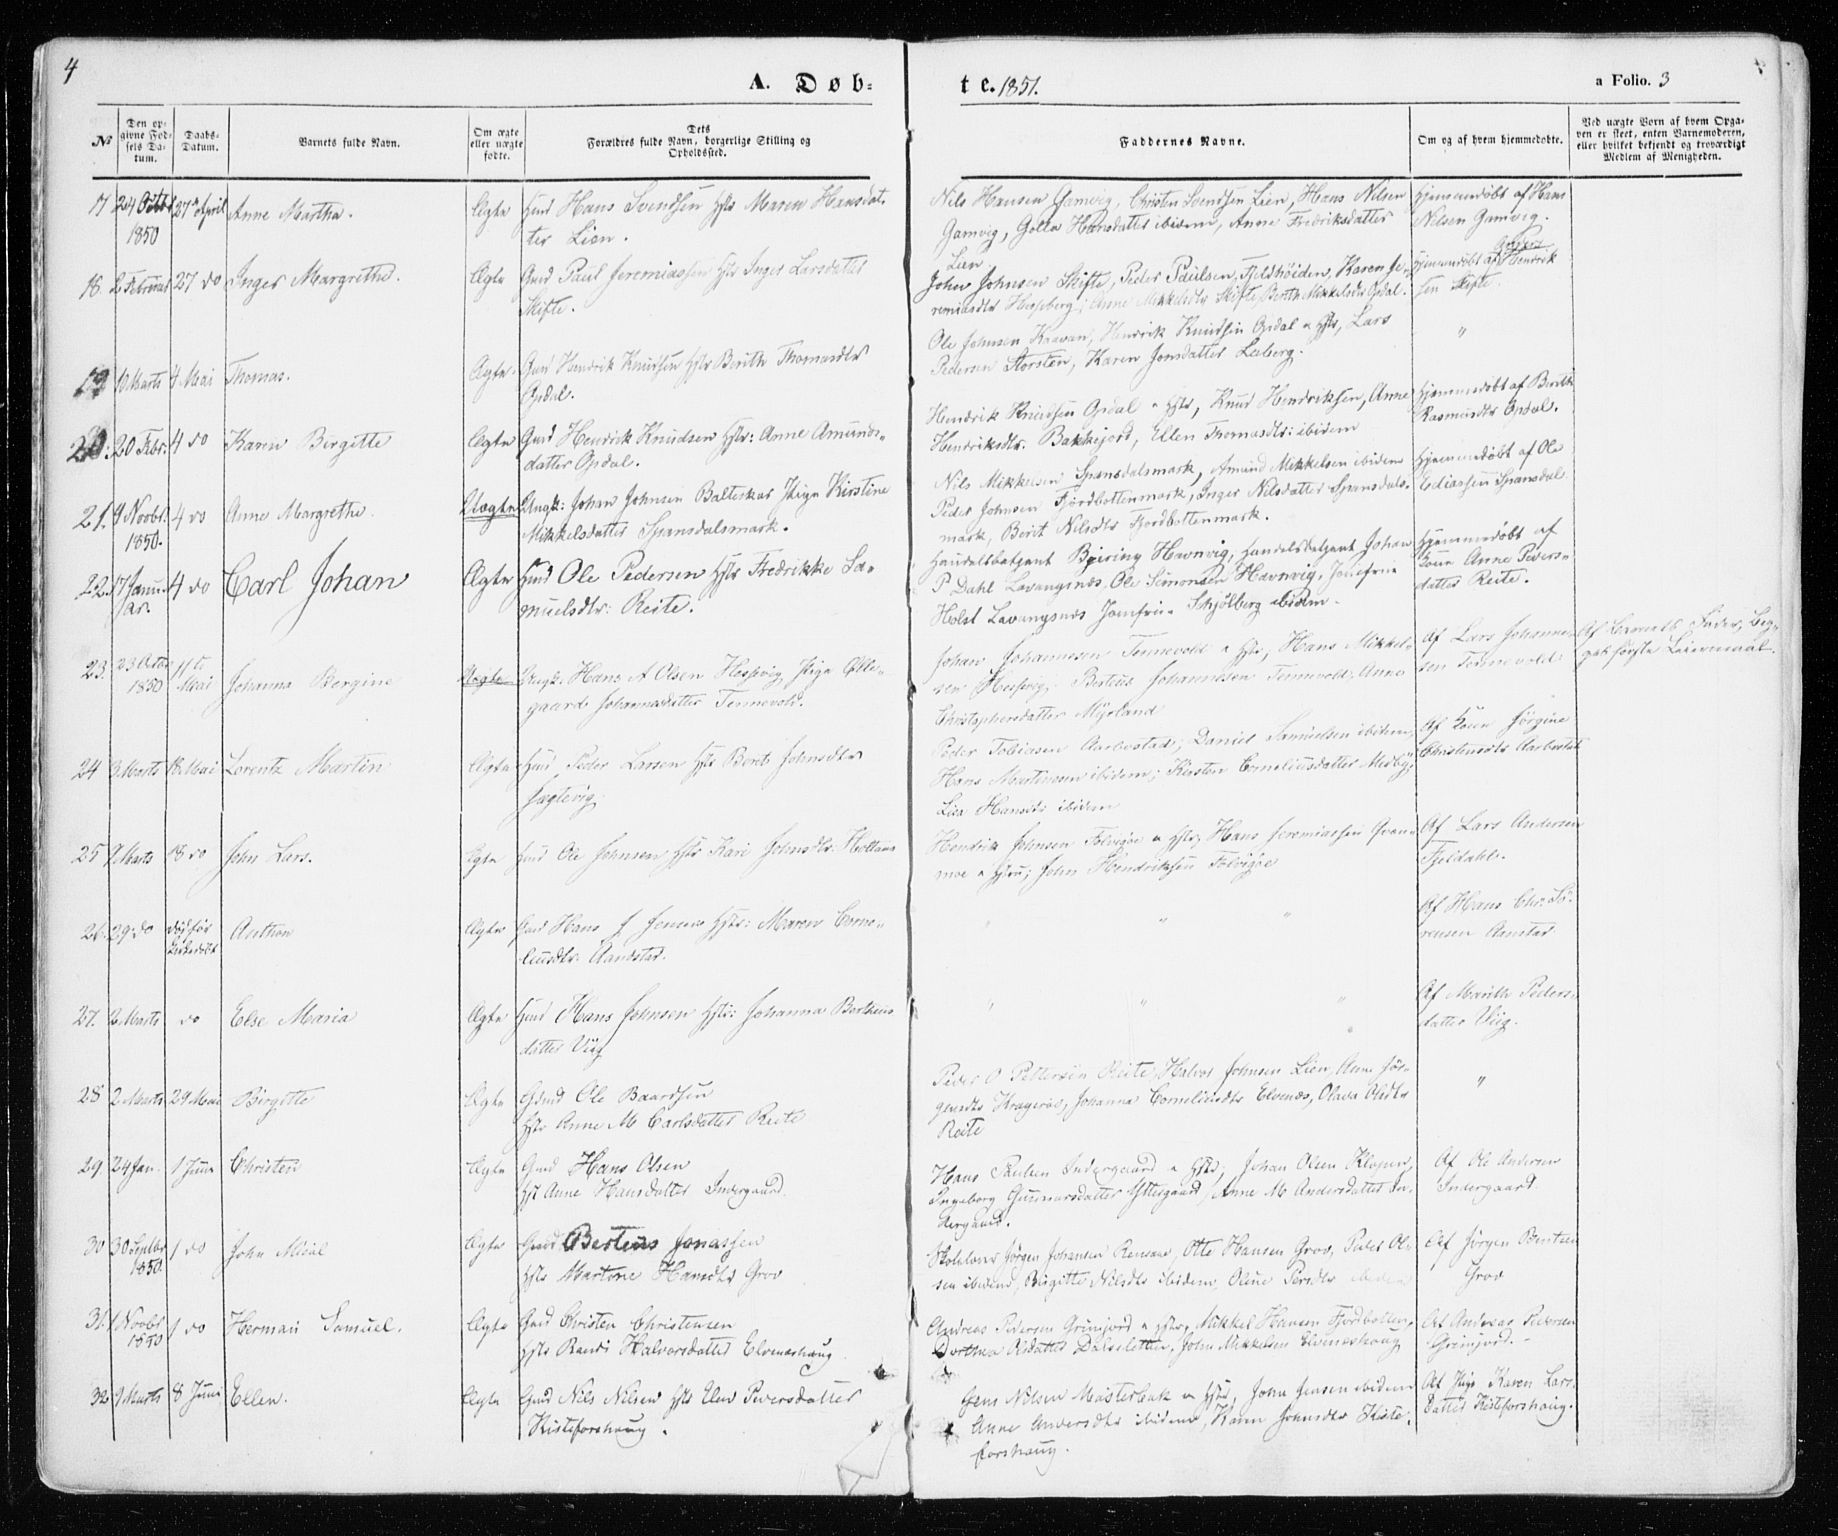 4
A. Døb-
te. 1851.
a Folio. 3
No
Den op-
givne Fød-
sels Da-
tum.
Daabs-
Datum.
Barnets fulde Navn.
Om ægte
eller uægte
fødte.
Dets
Forældres fulde Navn, borgerlige Stilling og
Opholdssted.
Faddernes Navne.
Om og af hvem hjemmedøbte.
Ved uægte Børn af hvem Opga-
ven er skeet, enten Barnemoderen,
eller hvilket bekjendt og troværdigt
Medlem af Menigheden.
17 24 Octbr 27de April Anne Martha. Ægte Gmd Hans Svendsen Hstr Maren Hansdat-
1850
ter Lien.
Nils Hansen Gamvig, Christen Svendsen Lien, Hans Nilsen
Gamvig, Golla Hansdatter ibidem, Anne Fredriksdatter
Lien.
Hjemmedøbt af Hans
Nilsen Gamvig.
18. 2 Februar 27 do Inger Margrethe. Ægte Gmd Paul Jeremiassen Hstr Inger Larsdatter
Skifte.
John Johnsen Skifte, Peder Paulsen Fjeldhøiden, Karen Je-
remiasdtr Hesseberg; Anne Mikkelsdtr Skifte, Berith Mikkelsdtr Opdal.
Hjemmedøbt af Hendrik
sen Skifte.
19 10 Marts 4 Mai Thomas. Ægte. Gmd Hendrik Knudsen Hstr Berith Thomasdtr
Opdal.
Ole Johnsen Kraavan, Hendrik Knudsen Opdal & Hstr, Lars
Pedersen Storsten, Karen Jonsdatter Leiberg.
"
20: 20 Febr: 4 do Karen Birgitte Ægte Gmd Hendrick Knudsen Hstr: Anne Amunds-
datter Opdal.
Hendrik Knudsen Opdal & Hstr, Knud Hendriksen, Anne
Hendriksdtr. Bakkejord, Ellen Thomasdtr: ibidem
Hjemmedøbt af Berith
Rasmusdtr Opdal.
21. 9 Novbr: 4 do Anne Margrethe. Uægte Ungk: Johan Johnsen Balteskar Pige Kirstine
1850.
Mikkelsdatter Spansdalsmark.
Nils Mikkelsen Spansdalsmark, Amund Mikkelsen ibidem
Peder Johnsen Fjordbottenmark, Inger Nilsdatter Spansdals-
mark, Berit Nilsdtr Fjordbottenmark.
Hjemmedøbt af Ole
Ediassen Spansdal
22. 17 Janu- 4 do Carl Johan Ægte Gmd Ole Pedersen Hstr Fredrikke Sa-
ar.
muelsdtr: Reite.
Handelsbetjent Beiring Havnvig, Handelsbetjent Johan
P Dahl Lavangsnæs, Ole Simonsen Havnvig, Jomfrue
Holst Lavangsnæs Jomfrue Schjölberg ibidem.
Hjemmedøbt af
Koen Anne Peders-
datter Reite.
23. 23 Octbr 11te Johanna Bergine Uægte Ungk. Hans A Olsen Hesjevig, Pige Olle-
1850 Mai
gaard Johannesdatter Tennevold.
Johan Johannesen Tennevold & Hstr, Hans Mikkel-
sen Hesjevig; Berteus Johannesen Tennevold; Anne
Christophersdatter Myrland
Af Lars Johanne-
sen Tennevold.
Af Barnets Fader, Beg-
ges første Leiermaal.
24 3 Marts 18 Mai Lorentz Martin Ægte Gmd Peder Larsen Hstr Berit Johnsdtr
Jægtevig
Peder Tobiasen Aarbostad; Daniel Samuelsen ibidem;
Hans Martinsen ibidem; Kirsten Corneliusdatter Medby;
Lisa Hansdtr ibidem
Af Koen Jørgine
Christensdtr Aarbostad
25 9 Marts 18 do John Lars. Ægte Gmd Ole Johnsen Hstr Kari Johnsdtr.
Hendrik Johnsen Følvigøe & Hstr; Hans Jeremiassen Gran-
moe & Hstru; John Hendriksen Følvigøe
Af Lars Andersen
Fjeldahl.
26. 29 do død før Anthon Ægte Gmd Hans J Jensen Hstr: Maren Corne-
liusdtr. Aanestad.
" " "
Af Hans Chr: Sö-
rensen Aanstad
27. 2 Marts do Else Maria Ægte Gmd Hans Johnsen Hstr: Johanna Bertheus
datter Viig
" " "
Af Marith Peders-
datter Viig.
28 2 Marts 29 Mai Birgitte Ægte Gmd Ole Baardsen
Hstr Anne M Carlsdatter Reite
Peder O Pettersen Reite, Halvor Johnsen Lien, Anne Jör-
gensdtr Krageröe, Johanna Corneliusdtr Elvenæs, Olava Olsdtr
Reite
"
29. 24 Jan. 1 Juni Christen Ægte Gmd Hans Olsen
Hst Anne Hansdatter Indergaard.
Hans Paulsen Indergaard & Hstr; Johan Olsen Kloven,
Ingeborg Gunnarsdatter Yttergaard, Anne M Andersdatter In-
dergaard.
Af Ole Andersen
Indergaard.
30 30 Septbr 1 do John Mical Ægte Gmd Berteus Jonassen
1850.
Hstr Martine Hansdtr Grov
Skolelærer Jørgen Johansen Rensaae, Otte Hansen Grov, Peder Ol-
sen ibidem, Birgitte Nilsdtr ibidem, Oline Persdtr ibidem
Af Jørgen Bentsen
Grov
31. 1 Novbr 1 do Herman Samuel. Ægte Gmd Christen Christensen
1850
Hstr Randi Halvorsdatter Elveneshaug.
Andreas Pedersen Grimjord & Hstr, Mikkel Hansen Fjordbotten,
Dorthea Olsdatter Dalsletten, John Mikkelsen Elveneshaug
Af Andreas Pedersen
Grimjord.
32 9 Marts 8 Juni Ellen. Ægte Gmd Nils Nilsen Hstr Elen Pedersdatter
Kisteforshaug.
Jens Nilsen Mosterbak & Hstr, John Jensen ibidem
Anne Andersdtr ibidem, Karen Johnsdtr Kiste-
forshaug.
Af Pige Karen Lars-
datter Kisteforshaug.